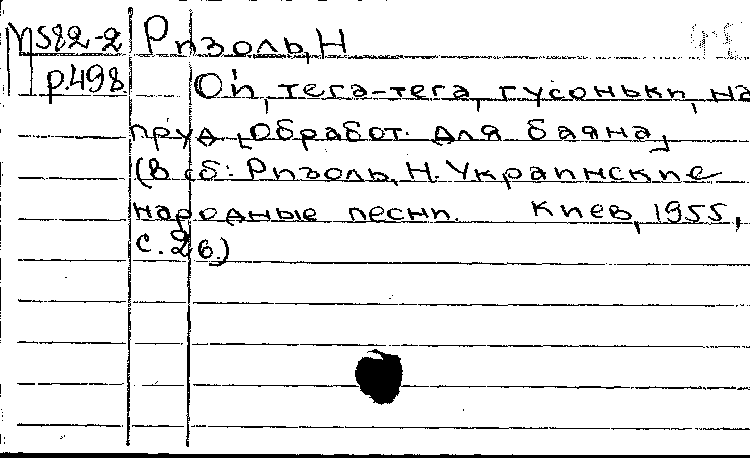 М582-2 Ризоль, Н
р.498 Ой, тега-тега, гусоньки, на
пруд [Обработ. для баяна]
(в сб: Ризоль, Н. Украинские
народные песни. Киев, 1955,
с. 26.)